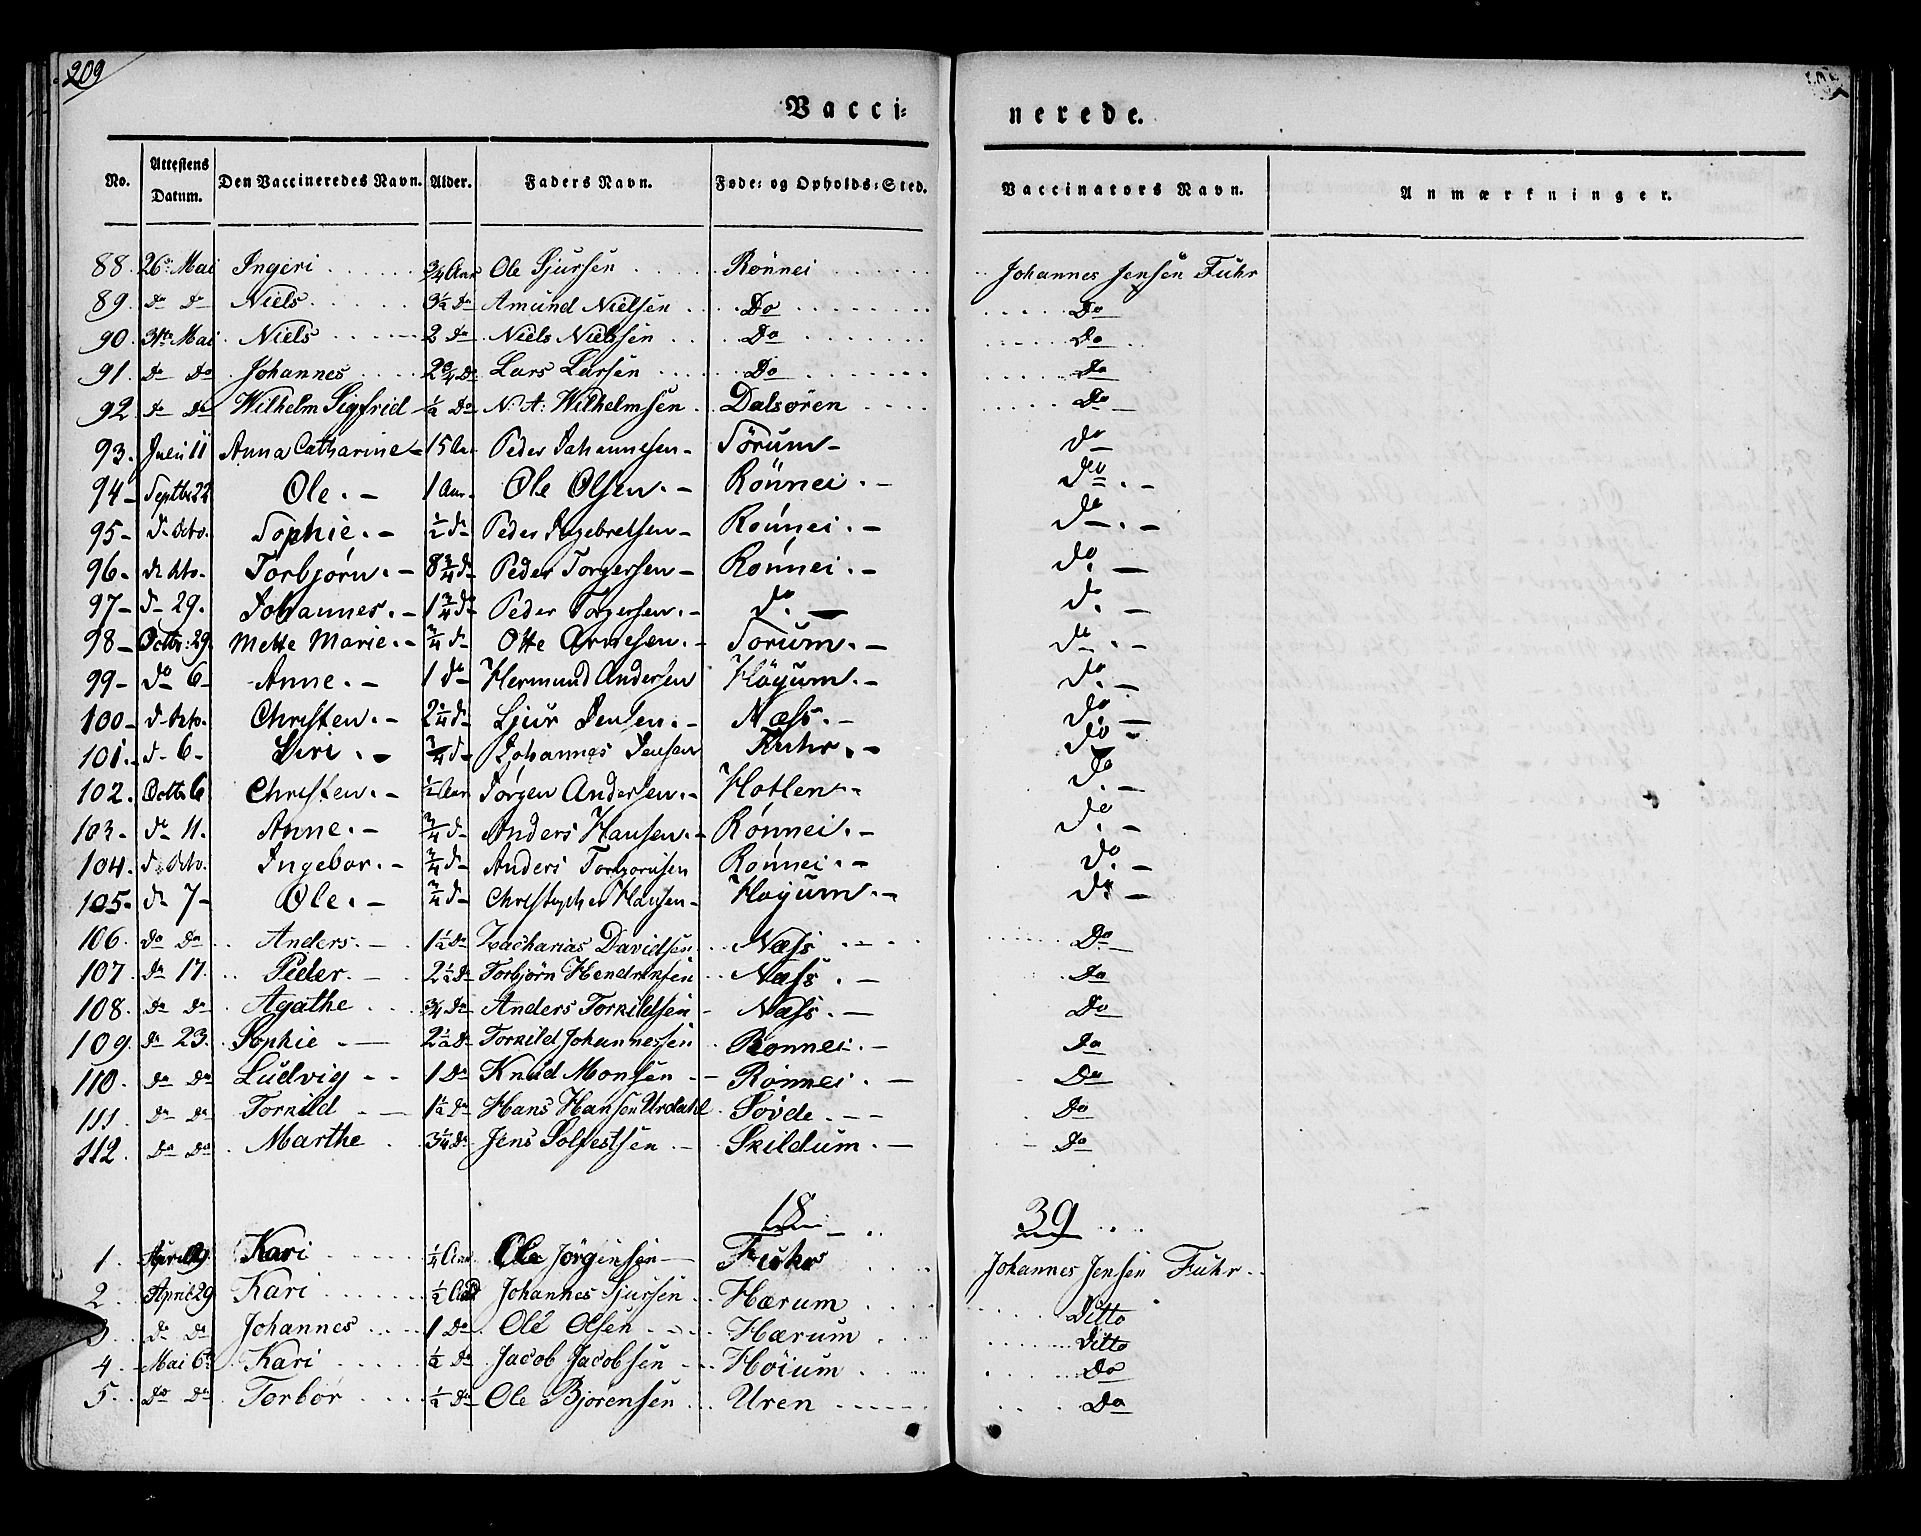 209
Vacci= nerede.
No. Attestens Datum. Den Vaccineredes Navn. Alder. Faders Navn. Føde= og Opholds=Sted. Vaccinators Navn. Anmærkninger.
88. 26. Mai Ingeri 3/4 Aar Ole Sjursen Rønnei Johannes Jensen Fuhr
89. Do Do Niels 3½ Do Amund Nielsen Do Do
90. 31te Mai Niels 2 Do Niels Nielsen Do Do
91. Do Do Johannes 2¾ Do Lars Larsen Do Do
92. Do Do Wilhelm Sigfried ½ Do N. A. Wilhelmsen Dalsøren Do
93. Juli 11 Anna Catharine 15 Aar Peder Johannesen Sørum Do
94 Septbr 22 Ole 1 Aar Ole Olsen Rönnei Do
95 Do Dito Sophie ½ Do Peder Ingebretsen Rønnei Do
96 Do Dito Torbjørn 8¾ Do Peder Torgersen Rønnei Do
97 Do 29. Johannes 1¾ Do Peder Torgersen Do Do
98 Octbr 29. Mette Marie ¾ Do Otte Arnesen Sorum Do
99 Do 6 Anne 1 Do Hermund Andersen Høyum Do
100 Do Dito Christen 2¼ Do Sjur Jensen Næss Do
101 Do 6 Siri ¾ Do Johannes Jensen Fuhr Do
102. Octbr 6 Christen ½ Aar Jørgen Andersen Hotlen Do
103. Do 11. Anne ¾ Do Anders Hansen Rønnei Do
104. Do Dito Ingebor ¾ Do Anders Rønnei Do
105 Do 7 Ole ¾ Do Christopher Hansen Høyum Do
106. Do Do Anders 1½ Do Zacharias Davidsen Næss Do
107. Do 17. Peder 2½ Do Torbjörn Hendriksen Næss Do
108. Do Do Agathe ¾ Do Anders Torkildsen Næss Do
109. Do 23. Sophie 2½ Do Torkild Johannessen Rønnei Do
110. Do Do Ludvig 1 Do Knud Monsen Rønnei Do
111. Do Do Torkild 1½ Do Hans Hansen Urdahl Søvde Do
112. Do Do Marthe 3¼ Do Jens Solfestsen Skildum Do
18 39
1. April 29 Kari ¼ Aar Ole Jørgensen Fuhr Johannes Jensen Fuhr
2. April 29 Kari ½ Aar Johannes Sjursen Hærum Ditto
3. Do Do Johannes 1 Do Ole Olsen Hærum Ditto
4. Mai 6te Kari ½ Do Jacob Jacobsen Høium Do
5. Do Do Torbor ½ Do Ole Bjørensen Uren Do